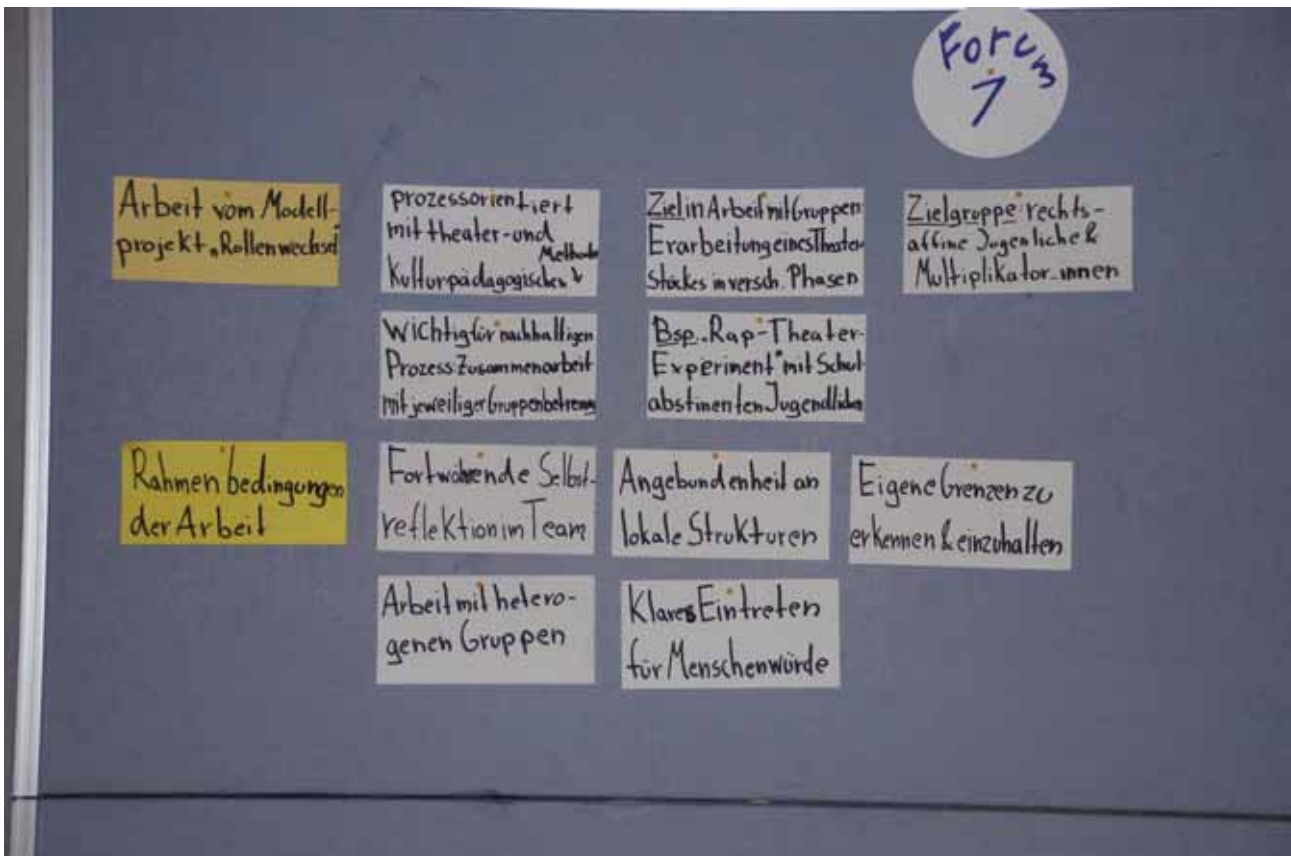 Forum
7
Arbeit vom Modell-
projekt „Rollenwechsel"
prozessorientiert
mit theater- und
Methoden
Kulturpädagogischen ↓
Ziel in Arbeit mit Gruppen
Erarbeitung eines Theater-
Stückes in versch. Phasen
Zielgruppe rechts-
affine Jugenliche &
Multiplikator_innen
Wichtig für nachhaltigen
Prozess: Zusammenarbeit
mit jeweiliger Gruppenbetreuung
Bsp. „Rap-Theater-
Experiment" mit Schul-
abstinenten Jugendlichen
Rahmenbedingungen
der Arbeit
Fortwährende Selbst-
reflektion im Team
Angebundenheit an
lokale Strukturen
Eigene Grenzen zu
erkennen & einzuhalten
Arbeit mit hetero-
genen Gruppen
Klares Eintreten
für Menschenwürde